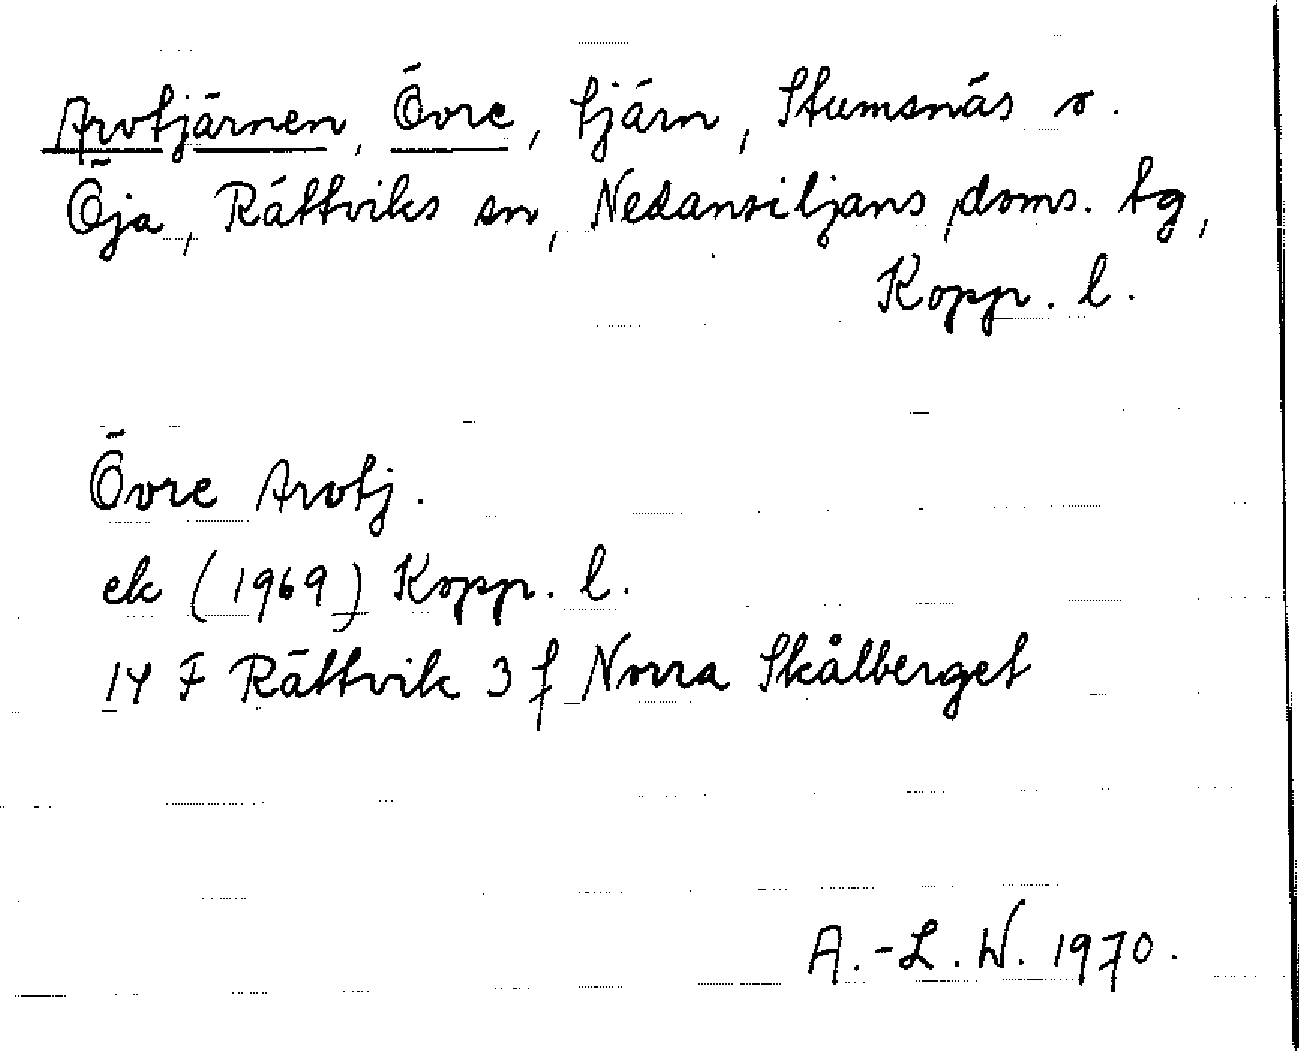 Arvtjärnen, Övre, tjärn, Stumsnäs o.
Öja, Rättviks sn, Nedansiljans doms. tg,
Kopp. l.
Övre Arvtj.
ek (1969) Kopp. l.
14 F Rättvik 3 f Norra Skålberget
A.-L. W. 1970.